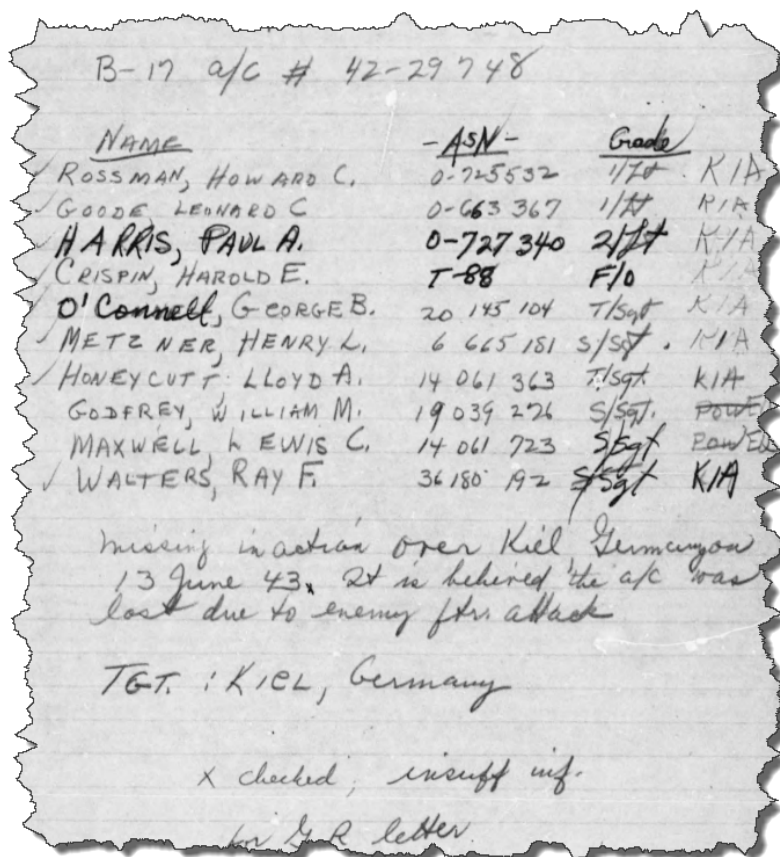 B-17 a/c # 42-29748
NAME -ASN- Grade
✓ ROSSMAN, HOWARD C. 0-725532 1/Lt. KIA
✓ GOODE, LEONARD C 0-663 367 1/Lt KIA
✓ HARRIS, PAUL A. 0-727 340 2/Lt KIA
✓ CRISPIN, HAROLD E. T-88 F/O KIA
✓ O'Connell, GEORGE B. 20 145 104 T/Sgt KIA
✓ METZNER, HENRY L. 6 665 181 S/Sgt. KIA
✓ HONEYCUTT LLOYD A. 14 061 363 T/Sgt KIA
GODFREY, WILLIAM M. 19 039 226 S/Sgt.
MAXWELL, LEWIS C. 14 061 723 S/Sgt
✓ WALTERS, RAY F. 36 180 192 S/Sgt KIA
missing in action over Kiel Germany on
13 June 43. It is belived the a/c was
lost due to enemy ftr. attack
TGT. : KIEL, Germany
x checked; insuff inf.
for G R letter.